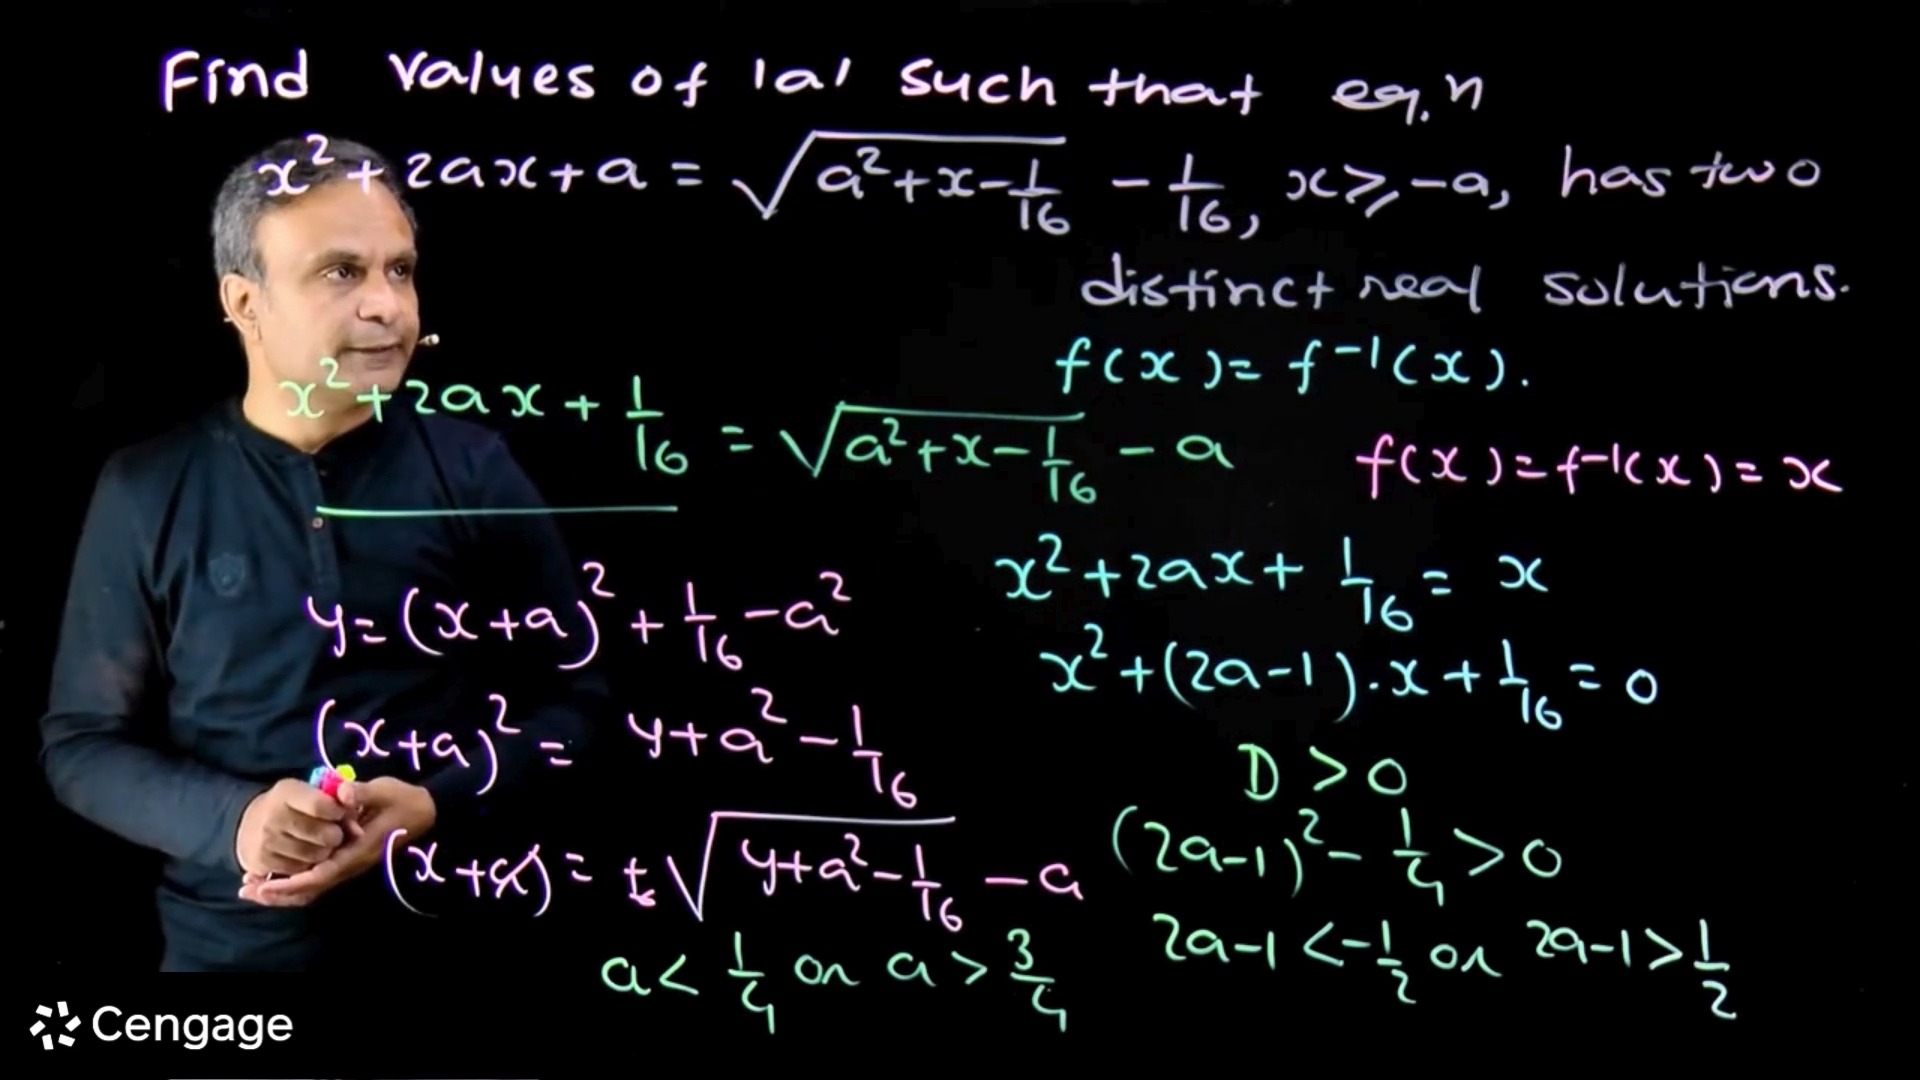 Find values of 'a' such that eq.n
x² + 2ax + a = √(a² + x - 1/16) - 1/16, x ≥ -a, has two
distinct real solutions.
f(x) = f⁻¹(x).
x² + 2ax + 1/16 = √(a² + x - 1/16) - a
f(x) = f⁻¹(x) = x
x² + 2ax + 1/16 = x
y = (x+a)² + 1/16 - a²
x² + (2a-1).x + 1/16 = 0
(x+a)² = y + a² - 1/16
D > 0
(x+a) = ±√(y + a² - 1/16) - a
(2a-1)² - 1/4 > 0
2a-1 < -1/2 or 2a-1 > 1/2
a < 1/4 or a > 3/4
Cengage